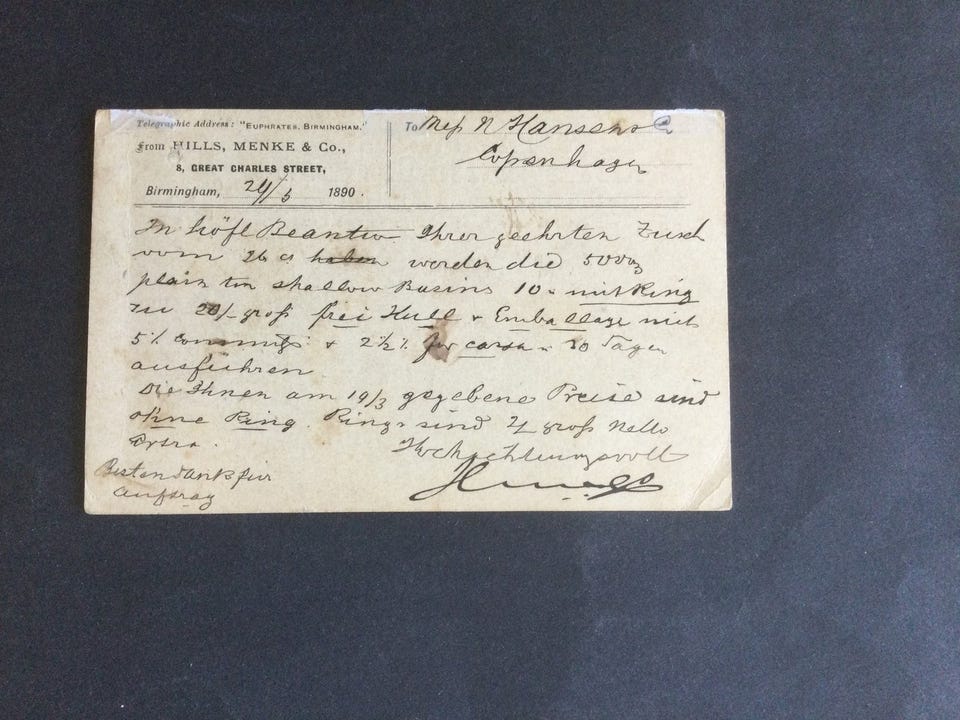 Telegraphic Address: "EUPHRATES, BIRMINGHAM."
From HILLS, MENKE & Co.,
8, GREAT CHARLES STREET,
Birmingham, 1890.
To Mess N Hansens
Copenhagen
In höfl Beantw. Ihrer geehrten Zusch
vom 26 cs haben werden die
plain tin shallow Basins 10 mit Ring
zu 20/- groß frei Hull & Emballage mit
5% & 2½% for cassa 10 Tagen
ausführen
Die Ihnen am 19/3 gegebene Preise sind
ohne Ring. Ringe sind groß Netto
Extra.
Hochachtungsvoll
Besten Dank für
Auftrag